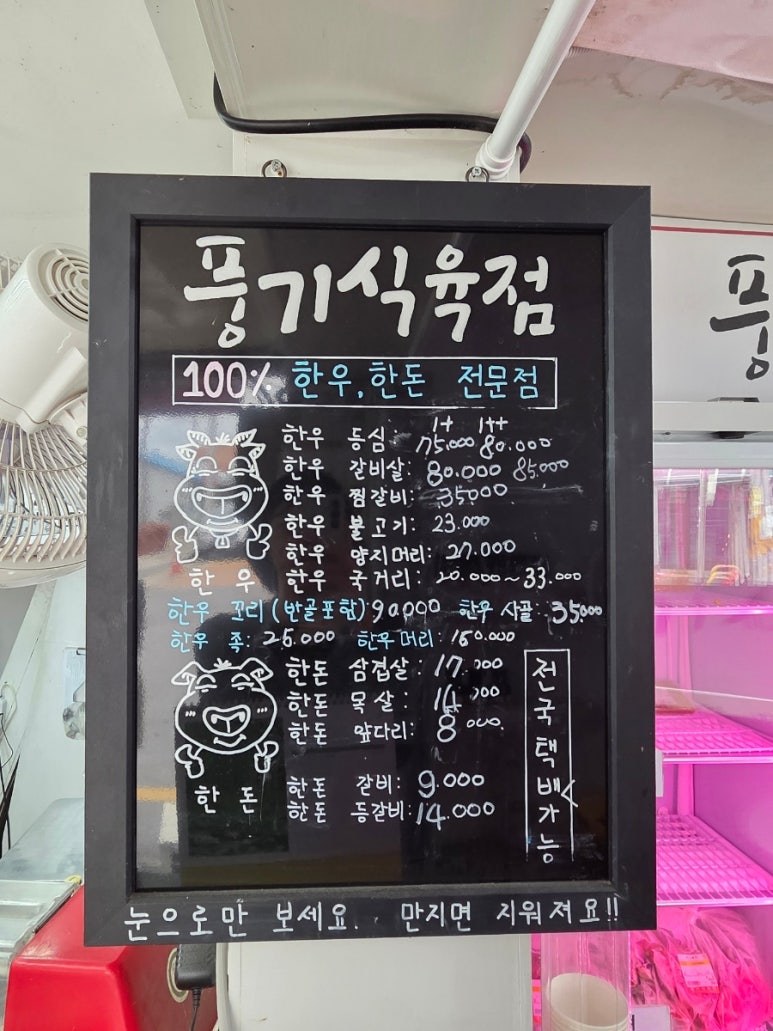 풍기식육점
100% 한우, 한돈 전문점
1+ 1++
한우 등심: 75.000 80.000
한우 갈비살: 80.000 85.000
한우 찜갈비: 35000
한우 불고기: 23.000
한우 양지머리: 27.000
한우 국거리: 20.000~33.000
한우
한우 꼬리(반골포함) 90000 한우 사골: 35000
한우 족: 25.000 한우머리: 150.000
한돈 삼겹살: 17.000
한돈 목살: .000
한돈 앞다리: 8.000
한돈 갈비: 9.000
한돈 등갈비: 14.000
한돈
전국택배가능
눈으로만 보세요. 만지면 지워져요!!
풍